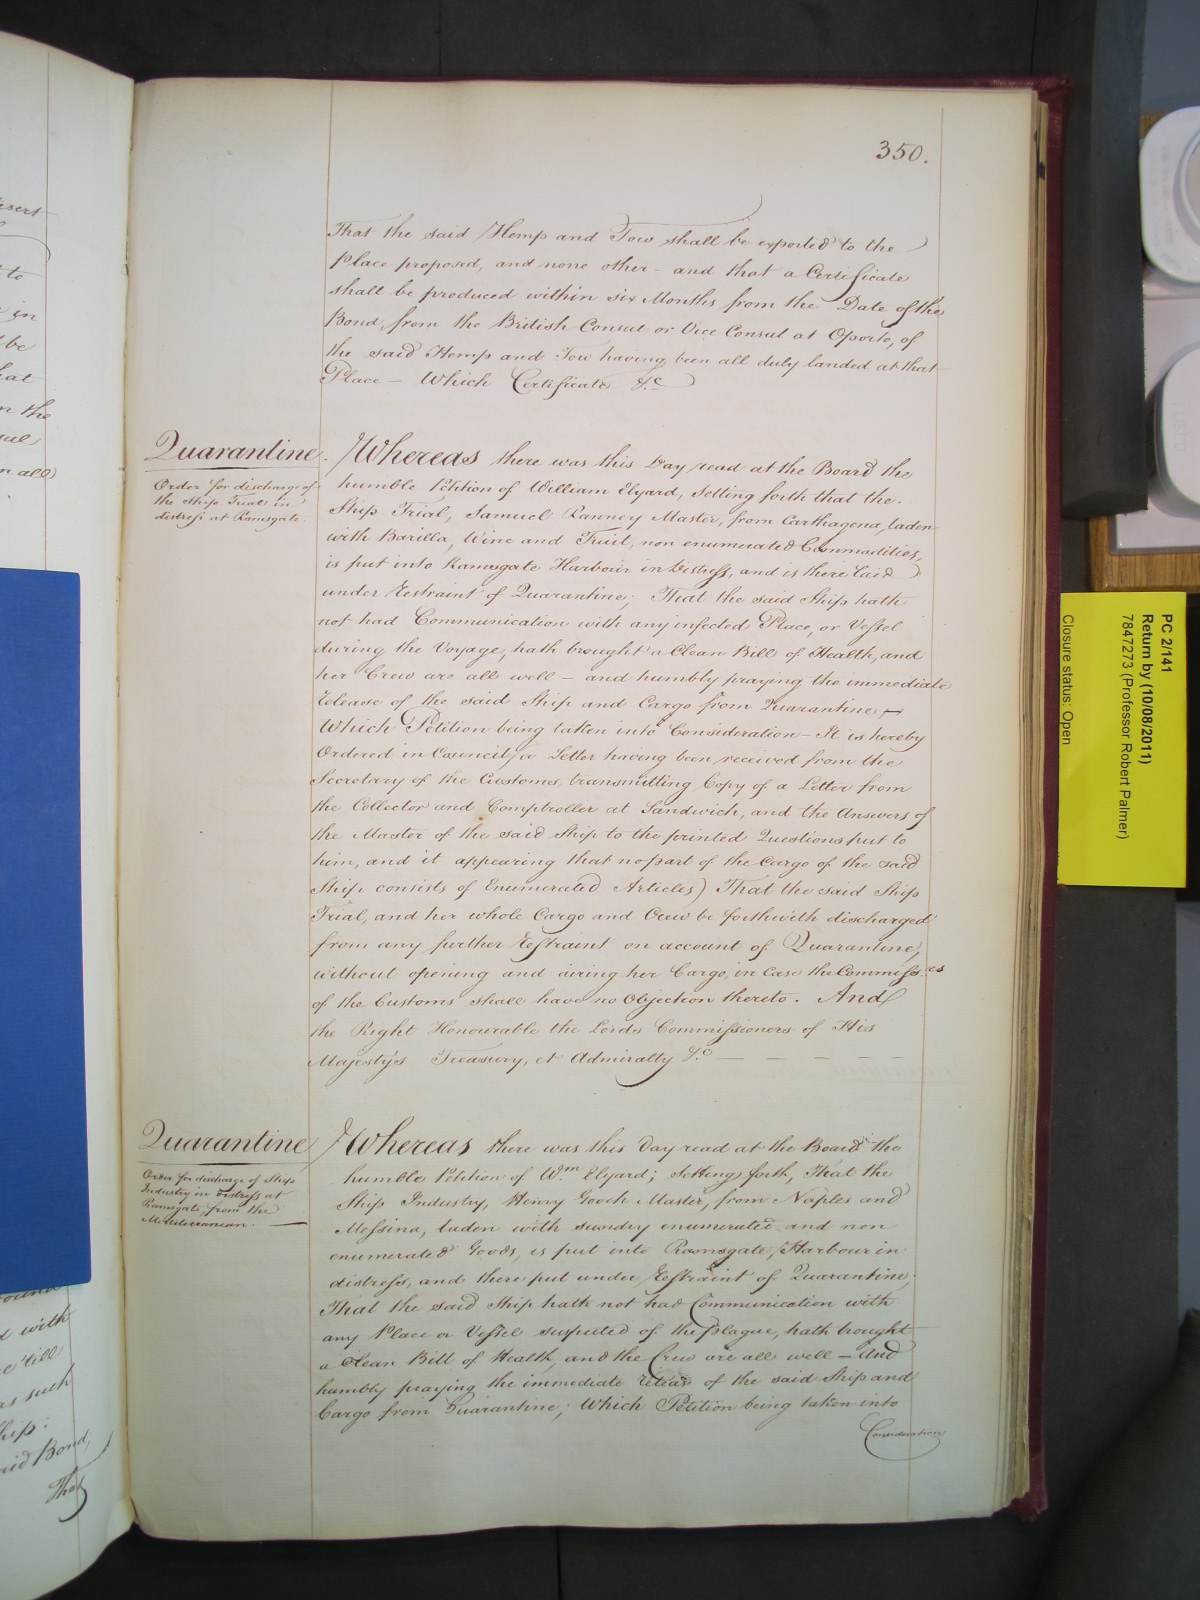 350.
That the said Hemp and Tow shall be exported to the
Place proposed, and none other - and that a Certificate
shall be produced within six Months from the Date of the
Bond, from the British Consul or Vice Consul at Oporto, of
the said Hemp and Tow having been all duly landed at that
Place — Which Certificate &c
Quarantine.
Order for discharge of
the Ship Trial in
distress at Ramsgate.
Whereas there was this Day read at the Board the
humble Petition of William Elyard, Setting forth that the
Ship Trial, Samuel Ranney Master, from Carthagena, laden
with Barilla, Wine and Fruit, non enumerated Commodities,
is put into Ramsgate Harbour in Distress, and is there laid
under Restraint of Quarantine; That the said Ship hath
not had Communication with any infected Place, or Vessel
during the Voyage, hath brought a Clean Bill of Health, and
her Crew are all well — and humbly praying the immediate
Release of the said Ship and Cargo from Quarantine —
Which Petition being taken into Consideration — It is hereby
Ordered in Council, (a Letter having been received from the
Secretary of the Customs, transmitting Copy of a Letter from
the Collector and Comptroller at Sandwich, and the Answers of
the Master of the said Ship to the printed Questions put to
him, and it appearing that no part of the Cargo of the said
Ship consists of Enumerated Articles) That the said Ship
Trial, and her whole Cargo and Crew be forthwith discharged
from any further Restraint on account of Quarantine,
without opening and airing her Cargo, in case the Commissrs
of the Customs shall have no Objection thereto. And
the Right Honourable the Lords Commissioners of His
Majesty's Treasury, et Admiralty &c — — — — —
Quarantine
Order for discharge of Ship
Industry in distress at
Ramsgate, from the
Mediterranean. —
Whereas there was this Day read at the Board the
humble Petition of Wm Elyard; Setting forth, That the
Ship Industry, Henry Gooch Master, from Naples and
Messina, laden with sundry enumerated and non
enumerated Goods, is put into Ramsgate Harbour in
distress, and there put under Restraint of Quarantine;
That the said Ship hath not had Communication with
any Place or Vessel suspected of the plague, hath brought
a Clean Bill of Health, and the Crew are all well — And
humbly praying the immediate release of the said Ship and
Cargo from Quarantine; Which Petition being taken into
Consideration
PC 2/141
Return by (10/08/2011)
7847273 (Professor Robert Palmer)
Closure status: Open
to
in
be
hat
the
all
with
till
as such
Ship:
said Bond,
That